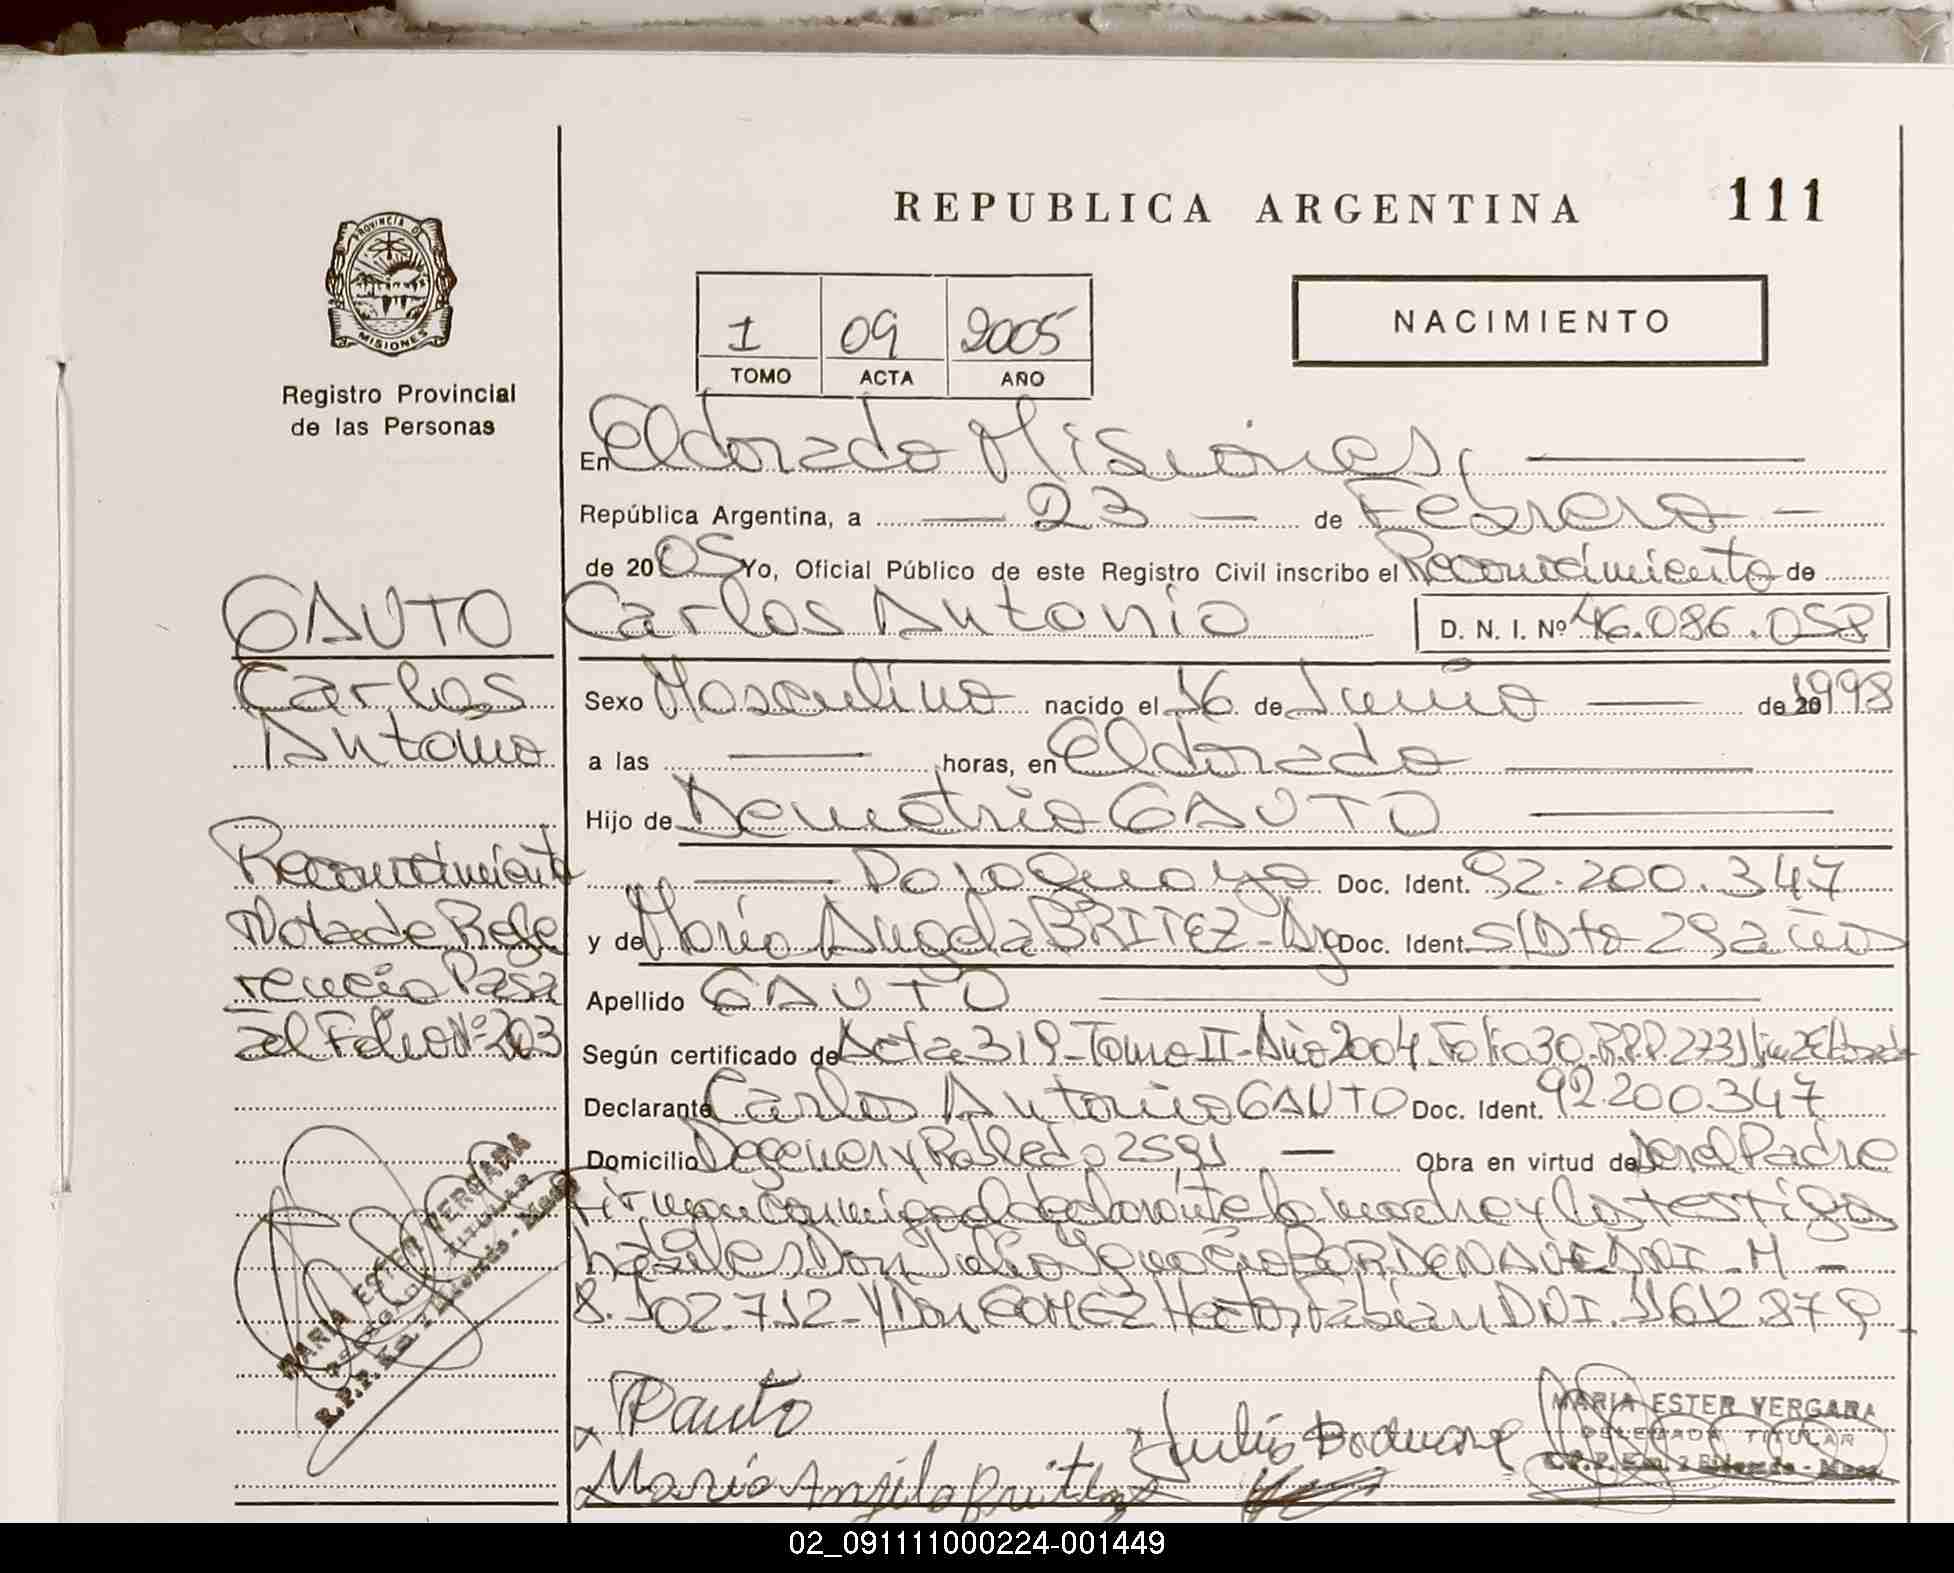 REPUBLICA ARGENTINA 111
PROVINCIA D
MISIONES
Registro Provincial
de las Personas
1 09 2005
TOMO ACTA AÑO
NACIMIENTO
En Eldorado Misiones,
República Argentina, a 23 de Febrero
de 2005 Yo, Oficial Público de este Registro Civil inscribo el Reconocimiento de
Carlos Antonio D. N. I. Nº 46.086.058
Sexo Masculino nacido el 16 de Junio de 20 1998
a las horas, en Eldorado
Hijo de Demetrio GAUTO
Paraguayo Doc. Ident. 92.200.347
y de María Angela BRITEZ - Arg Doc. Ident. S/Dto 29 años
Apellido GAUTO
Según certificado de Acta 319 - Tomo II - Año 2004 - Folio 30 - R.P.P. 2231
Declarante Carlos Antonio GAUTO Doc. Ident. 92.200.347
Domicilio y Robledo 2591 Obra en virtud de ser el Padre
firman conmigo el declarante la madre y los testigos
hábiles Don Julio Ignacio BORDENAVE DNI. M -
8.102.712 - Y Don GOMEZ Hector Fabian DNI. 11612.879
GAUTO
Carlos
Antonio
Reconocimiento
Nota de Refe
rencia Pasa
al Folio Nº 203
MARIA ESTER VERGARA
TITULAR
R.P.P. Km. 2 Eldorado - Mnes
Gauto
Julio Bordenave
María Angela Britez
MARIA ESTER VERGARA
DELEGADA TITULAR
R.P.P. Km. 2 Eldorado - Mnes
02_091111000224-001449